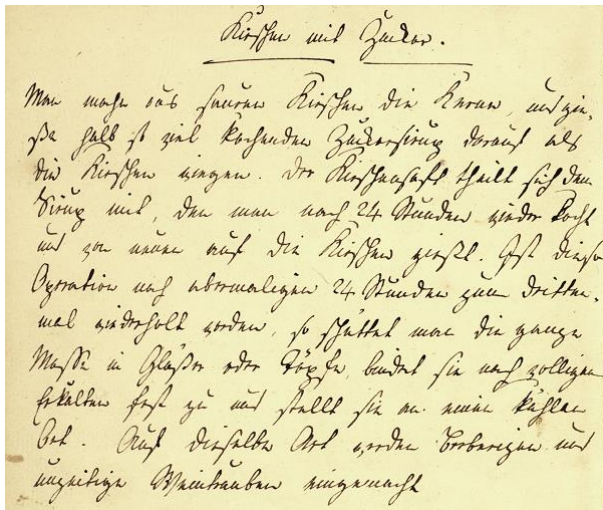 Kirschen mit Zucker.
Man mache aus sauren Kirschen die Kerne, und gie-
ße halb so viel kochenden Zuckersirup darauf als
die Kirschen wiegen. Der Kirschensaft theilt sich dem
Sirup mit, den man nach 24 Stunden wieder kocht
und von neuen auf die Kirschen gießt. Ist diese
Operation nach abermaligen 24 Stunden zum dritten-
mal wiederholt worden, so schüttet man die ganze
Masse in Gläser oder Töpfe, bindet sie nach völligen
Erkalten fest zu und stellt sie an einen kühlen
Ort. Auf dieselbe Art werden Berberizen und
unzeitige Weintrauben eingemacht